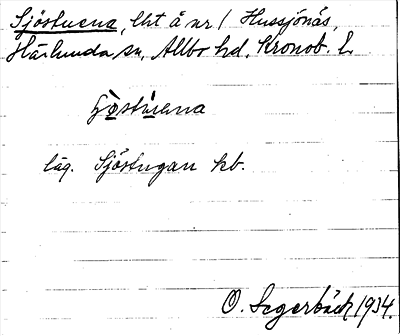 Sjöstuena, lht å nr 1 Hussjönäs,
Härlunda sn, Allbo hd, Kronob. l.
läg. Sjöstugan kb.
O. Segerbäck 1934.